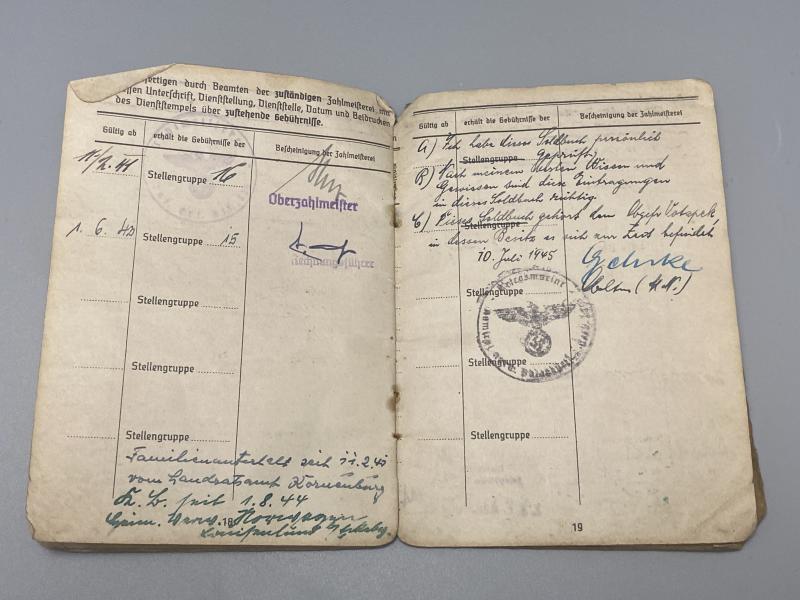 fertigen durch Beamten der zuständigen Zahlmeisterei
Unterschrift, Dienststellung, Dienststelle, Datum und Beidrucken
des Dienststempels über zustehende Gebührnisse.
Gültig ab erhält die Gebührnisse der Bescheinigung der Zahlmeisterei
Stellengruppe 16
Oberzahlmeister
1. 6. 43 Stellengruppe 15
Rechnungsführer
Stellengruppe
Stellengruppe
Stellengruppe
Familienunterhalt seit 11.2.41
vom Landratsamt Korneuburg
K. B. seit 1.8.44
18
Louisenlund
Gültig ab erhält die Gebührnisse der Bescheinigung der Zahlmeisterei
A) Ich habe dieses Soldbuch persönlich
Stellengruppe geprüft.
B) Nach meinem besten Wissen und
Gewissen sind diese Eintragungen
in dieses Soldbuch richtig.
C) Dieses Soldbuch gehört dem
Stellengruppe
in dessen Besitz es sich zur Zeit befindet
10. Juli 1945 Gehrke
Kriegsmarine
Stellengruppe
Stellengruppe
19